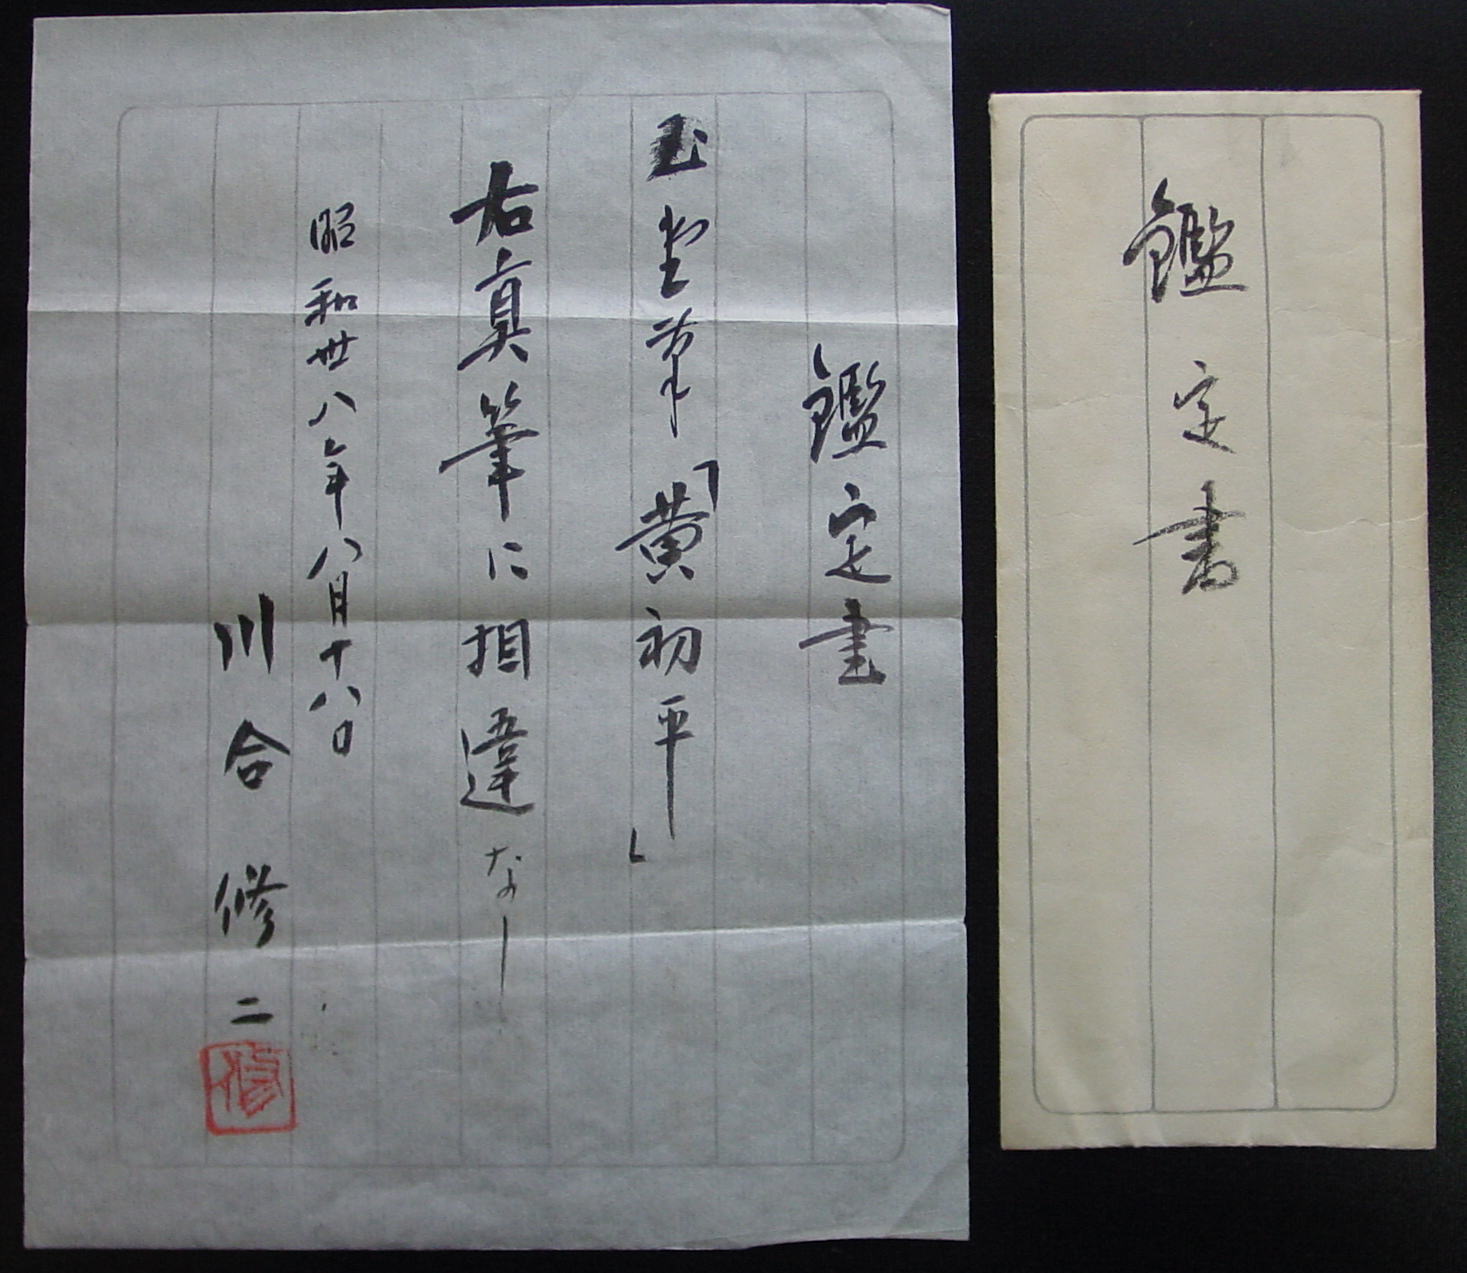 鑑定書
玉堂筆「黄初平」
右真筆に相違なし
昭和卅八年八月十八日
川合修二
修
鑑定書